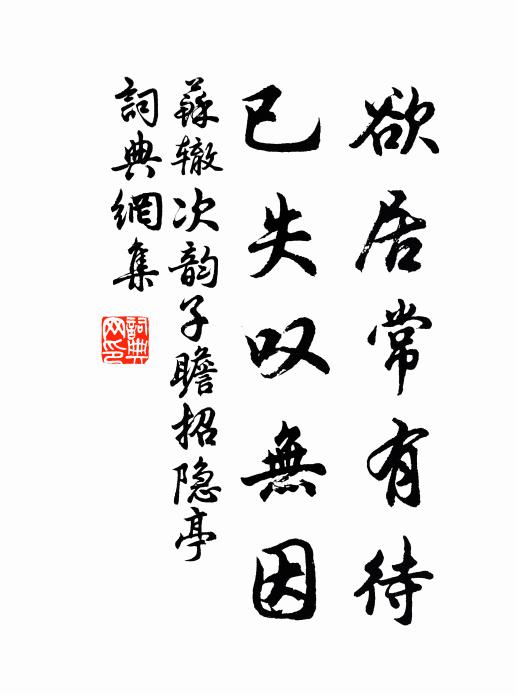 欲居常有待
已失叹無因
蘇辙次韵子瞻招隐亭
詞典網集
詞典网印